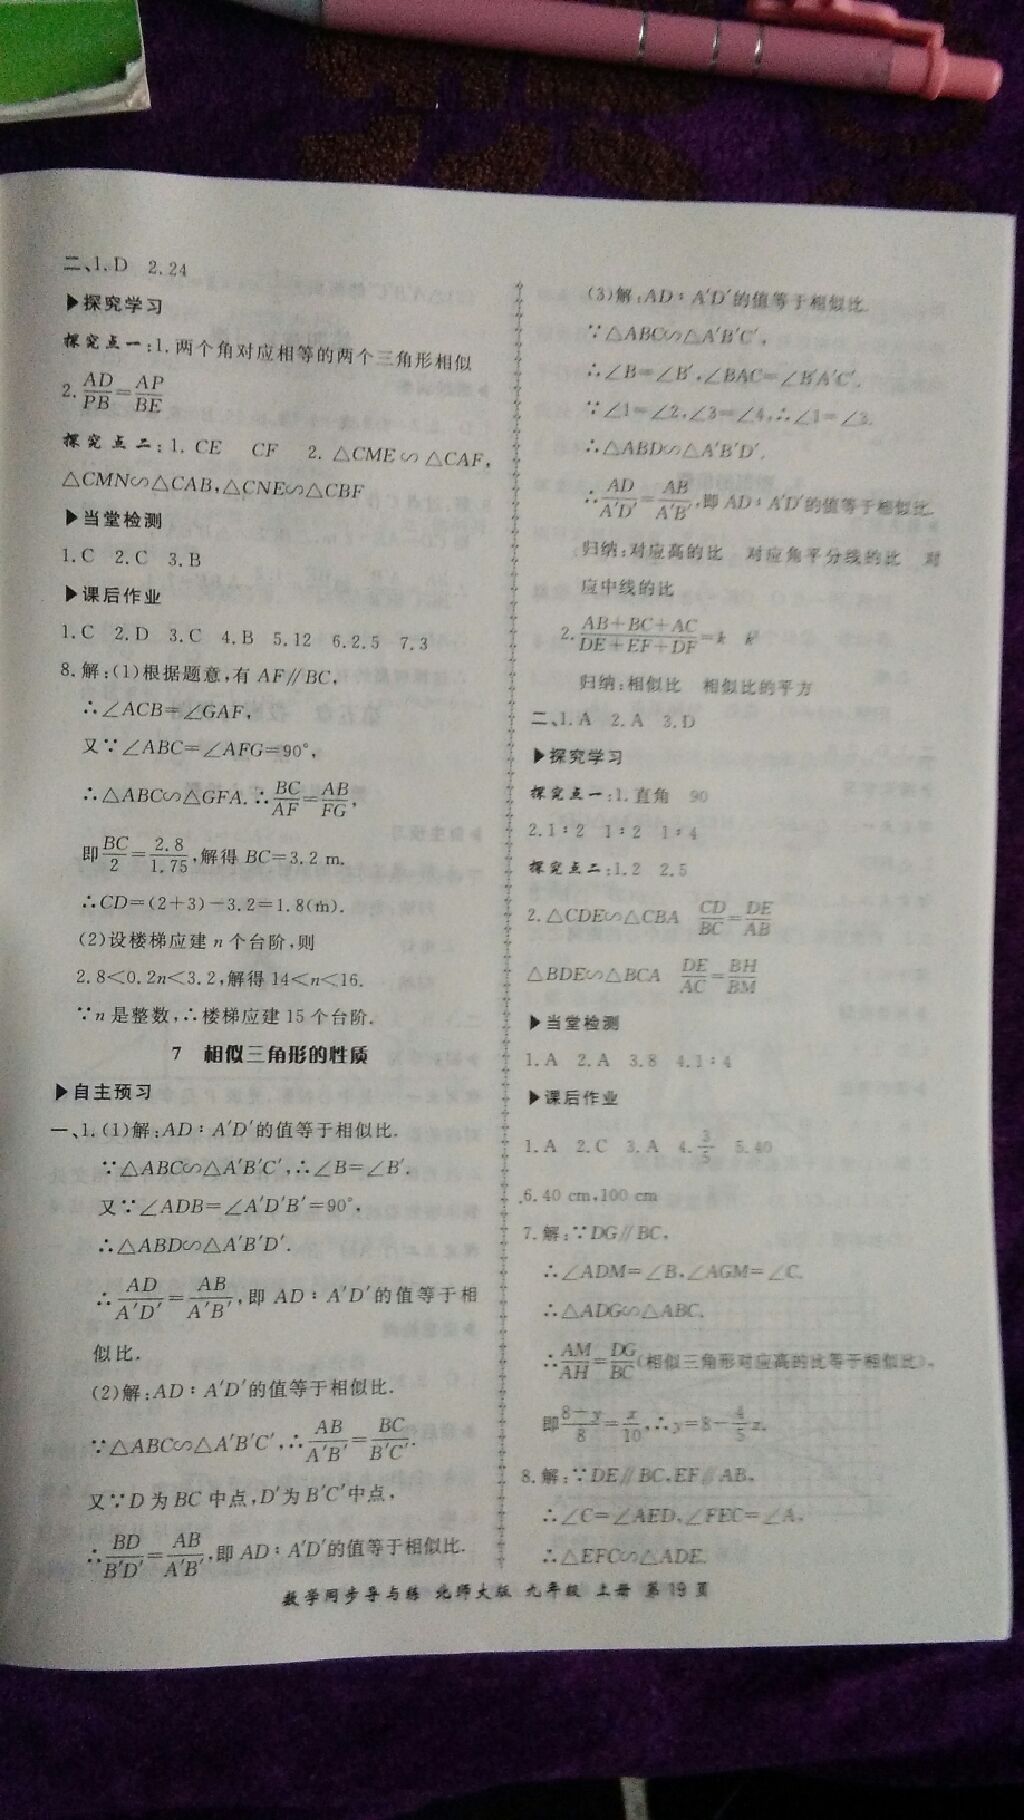 二、1.D 2.24
▶探究学习
探究点一:1.两个角对应相等的两个三角形相似
2.AD/PB=AP/BE
探究点二:1.CE CF 2.△CME∽△CAF,
△CMN∽△CAB,△CNE∽△CBF
▶当堂检测
1.C 2.C 3.B
▶课后作业
1.C 2.D 3.C 4.B 5.12 6.2.5 7.3
8.解:(1)根据题意,有 AF∥BC,
∴∠ACB=∠GAF,
又∵∠ABC=∠AFG=90°,
∴△ABC∽△GFA.∴BC/AF=AB/FG,
即BC/2=2.8/1.75,解得 BC=3.2 m.
∴CD=(2+3)-3.2=1.8(m).
(2)设楼梯应建 n 个台阶,则
2.8<0.2n<3.2,解得 14<n<16.
∵n 是整数,∴楼梯应建 15 个台阶.
7 相似三角形的性质
▶自主预习
一、1.(1)解:AD∶A′D′的值等于相似比.
∵△ABC∽△A′B′C′,∴∠B=∠B′.
又∵∠ADB=∠A′D′B′=90°,
∴△ABD∽△A′B′D′.
∴AD/A′D′=AB/A′B′,即 AD∶A′D′的值等于相
似比.
(2)解:AD∶A′D′的值等于相似比.
∵△ABC∽△A′B′C′,∴AB/A′B′=BC/B′C′.
又∵D 为 BC 中点,D′为 B′C′中点,
∴BD/B′D′=AB/A′B′,即 AD∶A′D′的值等于相似比.
(3)解:AD∶A′D′的值等于相似比.
∵△ABC∽△A′B′C′,
∴∠B=∠B′,∠BAC=∠B′A′C′.
∵∠1=∠2,∠3=∠4,∴∠1=∠3.
∴△ABD∽△A′B′D′.
∴AD/A′D′=AB/A′B′,即 AD∶A′D′的值等于相似比.
归纳:对应高的比 对应角平分线的比 对
应中线的比
2.AB+BC+AC/DE+EF+DF=k
归纳:相似比 相似比的平方
二、1.A 2.A 3.D
▶探究学习
探究点一:1.直角 90
2.1∶2 1∶2 1∶4
探究点二:1.2 2.5
2.△CDE∽△CBA CD/BC=DE/AB
△BDE∽△BCA DE/AC=BH/BM
▶当堂检测
1.A 2.A 3.8 4.1∶4
▶课后作业
1.A 2.C 3.A 4.3/5 5.40
6.40 cm,100 cm
7.解:∵DG∥BC,
∴∠ADM=∠B,∠AGM=∠C.
∴△ADG∽△ABC.
∴AM/AH=DG/BC(相似三角形对应高的比等于相似比),
即8-y/8=x/10,∴y=8-4/5x.
8.解:∵DE∥BC,EF∥AB,
∴∠C=∠AED,∠FEC=∠A,
∴△EFC∽△ADE.
数学同步导与练 北师大版 九年级 上册 第19页